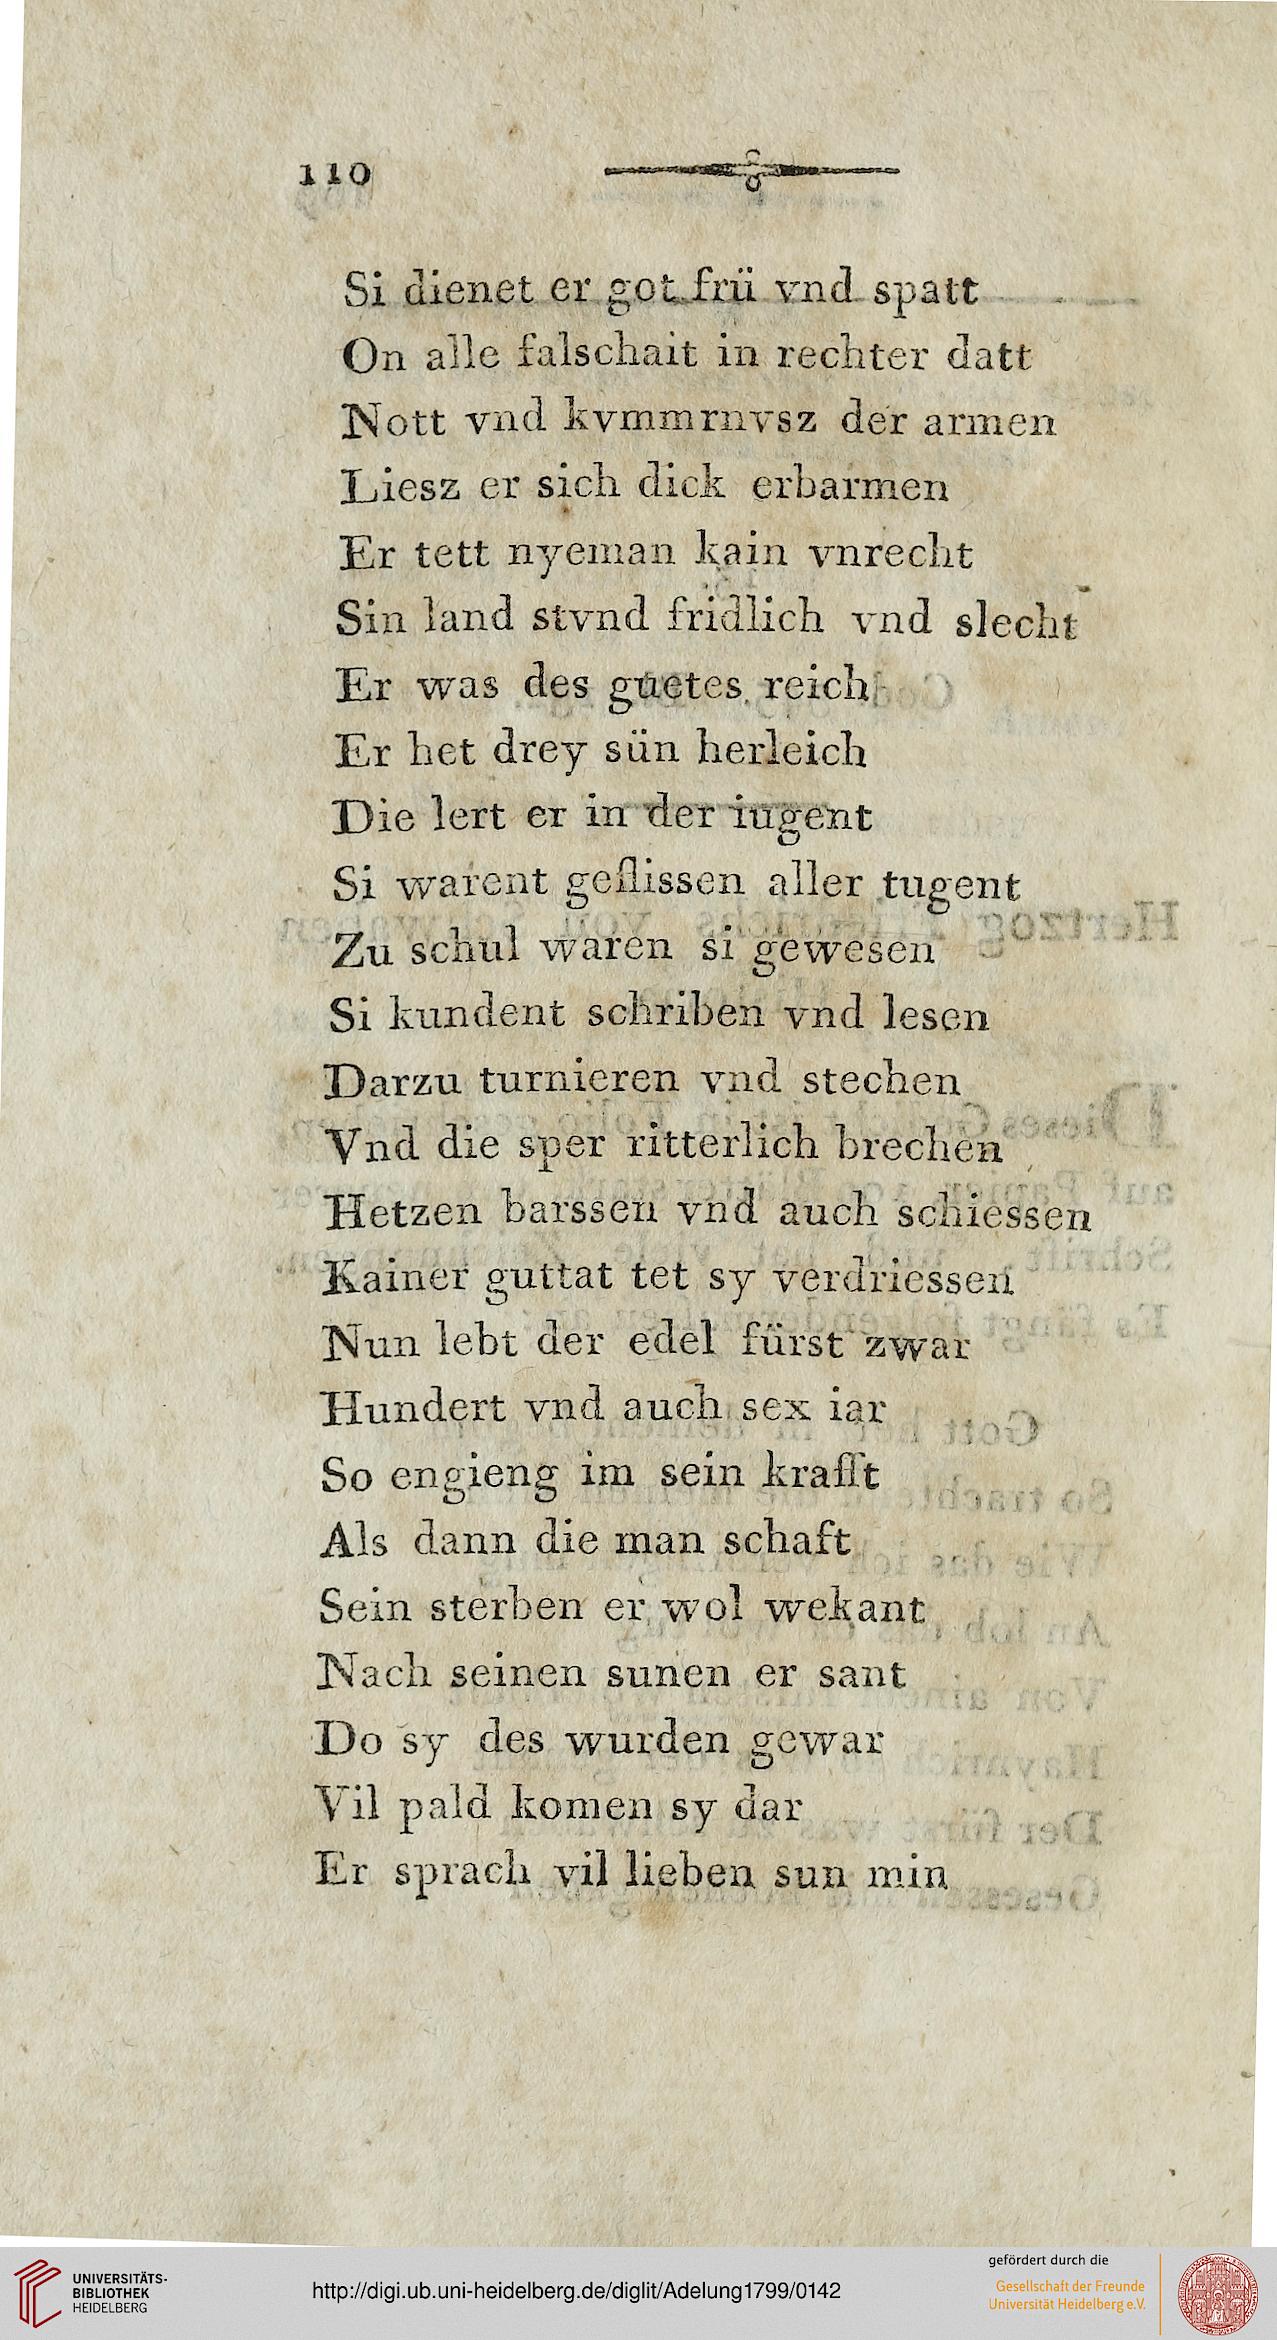 110
Si dienet er got frü vnd spatt
On alle falschait in rechter datt
Nott vnd kvmmrnvsz der armen
Liesz er sich dick erbarmen
Er tett nyeman kain vnrecht
Sin land stvnd fridlich vnd slecht
Er was des guetes reich
Er het drey sün herleich
Die lert er in der iugent
Si warent geflissen aller tugent
Zu schul waren si gewesen
Si kundent schriben vnd lesen
Darzu turnieren vnd stechen
Vnd die sper ritterlich brechen
Hetzen barssen vnd auch schiessen
Kainer guttat tet sy verdriessen
Nun lebt der edel fürst zwar
Hundert vnd auch sex iar
So engieng im sein krafft
Als dann die man schaft
Sein sterben er wol wekant
Nach seinen sunen er sant
Do sy des wurden gewar
Vil pald komen sy dar
Er sprach vil lieben sun min
UNIVERSITÄTS-
BIBLIOTHEK
HEIDELBERG
http://digi.ub.uni-heidelberg.de/diglit/Adelung1799/0142
gefördert durch die
Gesellschaft der Freunde
Universität Heidelberg e.V.